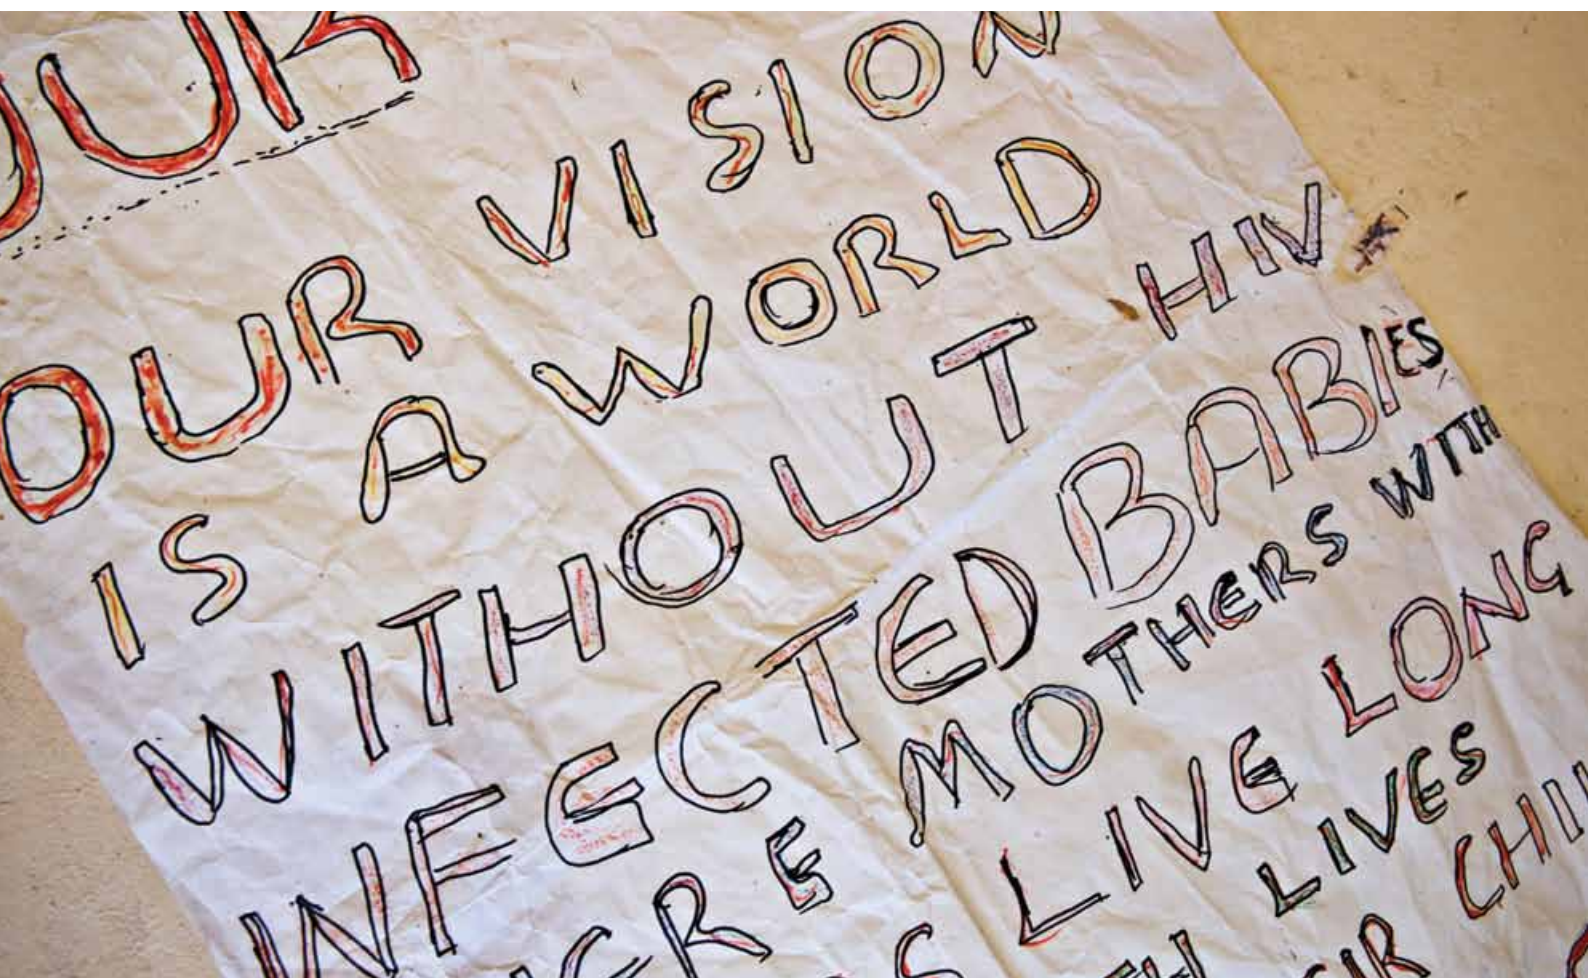 OUR
OUR VISION
IS A WORLD
WITHOUT HIV
INFECTED BABIES
MOTHERS WITH
LIVE LONG
LIVES